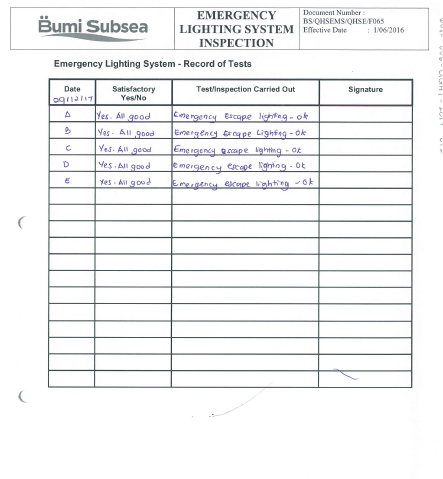 Bumi Subsea
EMERGENCY
LIGHTING SYSTEM
INSPECTION
Document Number :
BS/QHSEMS/QHSE/F065
Effective Date : 1/06/2016
Emergency Lighting System - Record of Tests
Date Satisfactory Yes/No Test/Inspection Carried Out Signature
09/12/17
A Yes. All good Emergency Escape lighting - ok
B Yes. All good Emergency Escape Lighting - ok
C Yes. All good Emergency Escape lighting - ok
D Yes. All good emergency escape lighting - ok
E Yes. All good Emergency escape lighting - ok